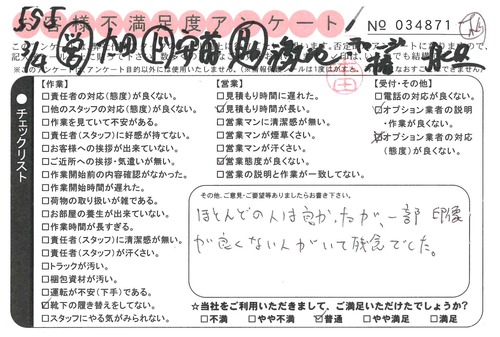 客様不満足度アンケート
№ 034871
チェックリスト
【作業】
□責任者の対応(態度)が良くない。
□他のスタッフの対応(態度)が良くない。
□作業を見ていて不安がある。
□責任者(スタッフ)に好感が持てない。
□お客様への挨拶が出来ていない。
□ご近所への挨拶・気遣いが無い。
□作業開始前の内容確認がなかった。
□作業開始時間が遅れた。
□荷物の取り扱いが雑である。
□お部屋の養生が出来ていない。
□作業時間が長すぎる。
□責任者(スタッフ)に清潔感が無い。
□責任者(スタッフ)が汗くさい。
□トラックが汚い。
□梱包資材が汚い。
□運転が不安(下手)である。
☑靴下の履き替えをしてない。
□スタッフにやる気がみられない。
【営業】
□見積もり時間に遅れた。
☑見積もり時間が長い。
□営業マンに清潔感が無い。
□営業マンが煙草くさい。
□営業マンが汗くさい。
☑営業態度が良くない。
□営業の説明と作業が一致してない。
【受付・その他】
□電話の対応が良くない。
☑オプション業者の説明
・作業が良くない。
☑オプション業者の対応
(態度)が良くない。
その他、ご意見・ご要望等ありましたらお書き下さい。
ほとんどの人は良かったが、一部 印象
が良くない人がいて残念でした。
☆当社をご利用いただきまして、ご満足いただけたでしょうか？
□不満 □やや不満 ☑普通 □やや満足 □満足